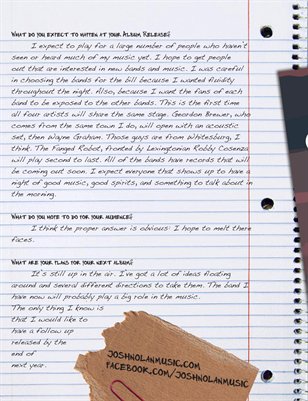 What do you expect to happen at your Album Release?
I expect to play for a large number of people who haven't
seen or heard much of my music yet. I hope to get people
out that are interested in new bands and music. I was careful
in choosing the bands for the bill because I wanted fluidity
throughout the night. Also, because I want the fans of each
band to be exposed to the other bands. This is the first time
all four artists will share the same stage. Geordon Brewer, who
comes from the same town I do, will open with an acoustic
set, then Wayne Graham. Those guys are from Whitesburg, I
think. The Fanged Robot, fronted by Lexingtonian Robby Cosenza
will play second to last. All of the bands have records that will
be coming out soon. I expect everyone that shows up to have a
night of good music, good spirits, and something to talk about in
the morning.
What do you hope to do for your audience?
I think the proper answer is obvious: I hope to melt there
faces.
What are your plans for your next album?
It's still up in the air. I've got a lot of ideas floating
around and several different directions to take them. The band I
have now will probably play a big role in the music.
The only thing I know is
that I would like to
have a follow up
released by the
end of
next year.
joshnolanmusic.com
facebook.com/joshnolanmusic